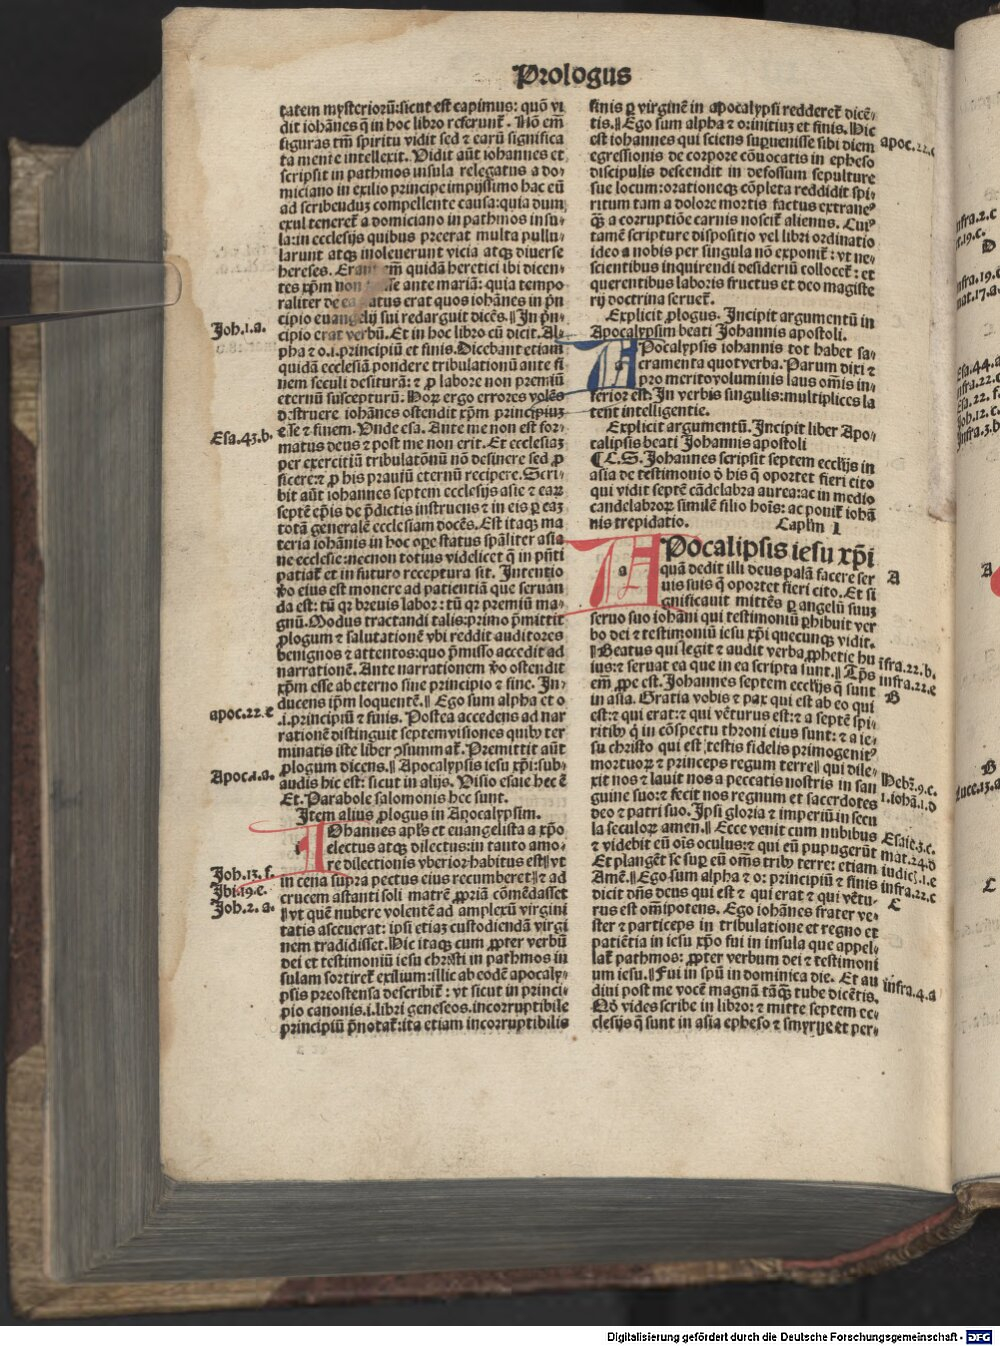 Prologus
tatem mysteriorū: sicut est capimus: quō vi
dit iohānes q̄ in hoc libro referunt᷑. Nō em̄
figuras tm̄ spiritu vidit sed ⁊ earū significa
ta mente intellexit. Vidit aūt iohannes et
scripsit in pathmos insula relegatus a do⸗
miciano in exilio principe impijssimo hac eū
ad scribenduȝ compellente causa: quia dum
exul teneret᷑ a domiciano in pathmos insu⸗
la: in ecclesijs quibus preerat multa pullu⸗
larunt atqȝ inoleuerunt vicia atqȝ diuerse
hereses. Erant em̄ quidā heretici ibi dicen⸗
tes xp̄m non se ante mariā: quia tempo
raliter de ea natus erat quos iohānes in p̄n
cipio euangelij sui redarguit dicēs. ¶ In p̄n⸗
Joh.1.a.
cipio erat verbū. Et in hoc libro cū dicit. Al⸗
pha ⁊ o.i. principiū et finis. Dicebant etiam
quidā ecclesiā pondere tribulationū ante fi
nem seculi desiturā: ⁊ ꝓ labore non premiū
eternū suscepturū. Horꝝ ergo errores volēs
destruere iohānes ostendit xp̄m principiuȝ
esse ⁊ finem. Vnde esa. Ante me non est for⸗
Esa.43.b.
matus deus ⁊ post me non erit. Et ecclesiaȝ
per exercitiū tribulatōnū nō desinere sed ꝓ
ficere: ⁊ ꝓ his prauiū eternū recipere. Scri⸗
bit aūt iohannes septem ecclesijs asie ⁊ earꝝ
septē ep̄is de p̄dictis instruens ⁊ in eis ꝑ eaȝ
totā generalē ecclesiam docēs. Est itaqȝ ma
teria iohānis in hoc oꝑe status sp̄aliter asia
ne ecclesie: necnon totius videlicet q̄ in p̄n̄ti
patiat᷑ et in futuro receptura sit. Intentio
v̄o eius est monere ad patientiā que seruan
da est: tū qꝛ breuis labor: tū qꝛ premiū ma⸗
gnū. Modus tractandi talis: primo p̄mittit
ꝓlogum ⁊ salutationē vbi reddit auditores
benignos ⁊ attentos: quo p̄misso accedit ad
narrationē. Ante narrationem v̄o ostendit
xp̄m esse ab eterno sine principio ⁊ fine. In⸗
ducens ip̄m loquentē. ¶ Ego sum alpha et o
apoc.22.c
.i. principiū ⁊ finis. Postea accedens ad nar
rationē distinguit septem visiones quibꝰ ter
minatis iste liber ꝯsummat᷑. Premittit aūt
ꝓlogum dicens. ¶ Apocalypsis iesu xp̄i: sub⸗
Apoc.1.a.
audis hic est: sicut in alijs. Visio esaie hec ē
Et. Parabole salomonis hec sunt.
Item alius ꝓlogus in Apocalypsim.
IOhannes apl̓s et euangelista a xp̄o
electus atqȝ dilectus: in tanto amo⸗
re dilectionis vberior habitus est ¶ vt
Joh.13.f.
in cena supra pectus eius recumberet ¶ ⁊ ad
Jbi.19.e.
crucem astanti soli matrē ꝓpriā cōmēdasset
Joh.2.a.
¶ vt quē nubere volentē ad amplexū virgini
tatis asciuerat: ipsi etiaȝ custodiendā virgi
nem tradidisset. Hic itaqȝ cum ꝓpter verbū
dei et testimoniū iesu christi in pathmos in
sulam sortiret᷑ exilium: illic ab eodē apocaly⸗
psis preostensa describit᷑: vt sicut in princi⸗
pio canonis .i. libri geneseos. incorruptibile
principiū p̄notat᷑: ita etiam incorruptibilis
finis ꝑ virginē in apocalypsi redderet᷑ dicē⸗
tis. ¶ Ego sum alpha ⁊ o: initiuȝ et finis. Hic
apoc.22.c
est iohannes qui sciens suꝑuenisse sibi diem
egressionis de corpore cōuocatis in epheso
discipulis descendit in defossum sepulture
sue locum: orationeqȝ cōpleta reddidit spi⸗
ritum tam a dolore mortis factus extraneꝰ
qȝ̄ a corruptiōe carnis noscit᷑ alienus. Cuiꝰ
tamē scripture dispositio vel libri ordinatio
ideo a nobis per singula nō exponit᷑: vt ne⸗
scientibus inquirendi desideriū collocet᷑: et
querentibus laboris fructus et deo magiste
rij doctrina seruet᷑.
Explicit ꝓlogus. Incipit argumentū in
Apocalypsim beati Johannis apostoli.
APocalypsis iohannis tot habet sa⸗
cramenta quot verba. Parum dixi ⁊
pro merito voluminis laus om̄is in⸗
ferior est. In verbis singulis: multiplices la
tent intelligentie.
Explicit argumentū. Incipit liber Apo⸗
calipsis beati Johannis apostoli
¶ C.S. Johannes scripsit septem eccl̓ijs in
asia de testimonio ō his q̄ oportet fieri cito
qui vidit septē cādelabra aurea: ac in medio
candelabrorꝝ similē filio hoīs: ac ponit᷑ iohā
nis trepidatio. Caplm̄ I
APocalipsis iesu xp̄i
quā dedit illi deus palā facere ser
A
uis suis q̄ oportet fieri cito. Et si
gnificauit mittēs ꝑ angelū suuȝ
seruo suo iohāni qui testimoniū ꝑhibuit ver
bo dei ⁊ testimoniū iesu xp̄i quecunqȝ vidit.
¶ Beatus qui legit ⁊ audit verba ꝓphetie hu
ifra.22.b.
ius: ⁊ seruat ea que in ea scripta sunt. ¶ Tp̄s
infra.22.c
em̄ ꝓpe est. Johannes septem eccl̓ijs q̄ sunt
B
in asia. Gratia vobis ⁊ pax qui est ab eo qui
est: ⁊ qui erat: ⁊ qui vēturus est: ⁊ a septē spi⸗
ritibꝰ q̄ in cōspectu throni eius sunt: ⁊ a ie⸗
su christo qui est testis fidelis primogenitꝰ
mortuoꝝ ⁊ princeps regum terre ¶ qui dile⸗
xit nos ⁊ lauit nos a peccatis nostris in san
Hebꝛ̄.9.c.
guine suo: ⁊ fecit nos regnum et sacerdotes
1.iohā.1.d
deo ⁊ patri suo. Ipsi gloria ⁊ imperiū in secu
la seculoꝝ amen. ¶ Ecce venit cum nubibus
Esaie.3.c.
⁊ videbit eū oīs oculus: ⁊ qui eū pupugerūt
mat.24.d
Et plangēt se suꝑ eū om̄s tribꝰ terre: etiam
iudic.1.e
Amē. ¶ Ego sum alpha ⁊ o: principiū ⁊ finis
infra.22.c
dicit dn̄s deus qui est ⁊ qui erat ⁊ qui vētu⸗
C
rus est om̄ipotens. Ego iohānes frater ve⸗
ster ⁊ particeps in tribulatione et regno et
patiētia in iesu xp̄o fui in insula que appel⸗
lat᷑ pathmos: ꝓpter verbum dei ⁊ testimoni
um iesu. ¶ Fui in spū in dominica die. Et au
infra.4.a
diui post me vocē magnā tāqȝ tube dicētis.
Qd̄ vides scribe in libro: ⁊ mitte septem ec⸗
clesijs q̄ sunt in asia epheso ⁊ smyrne et per⸗
infra.2.c
D
Esa.22.f.
Joh.12.c.
infra.3.b
A
B
Luce.13.a
C
Digitalisierung gefördert durch die Deutsche Forschungsgemeinschaft - DFG